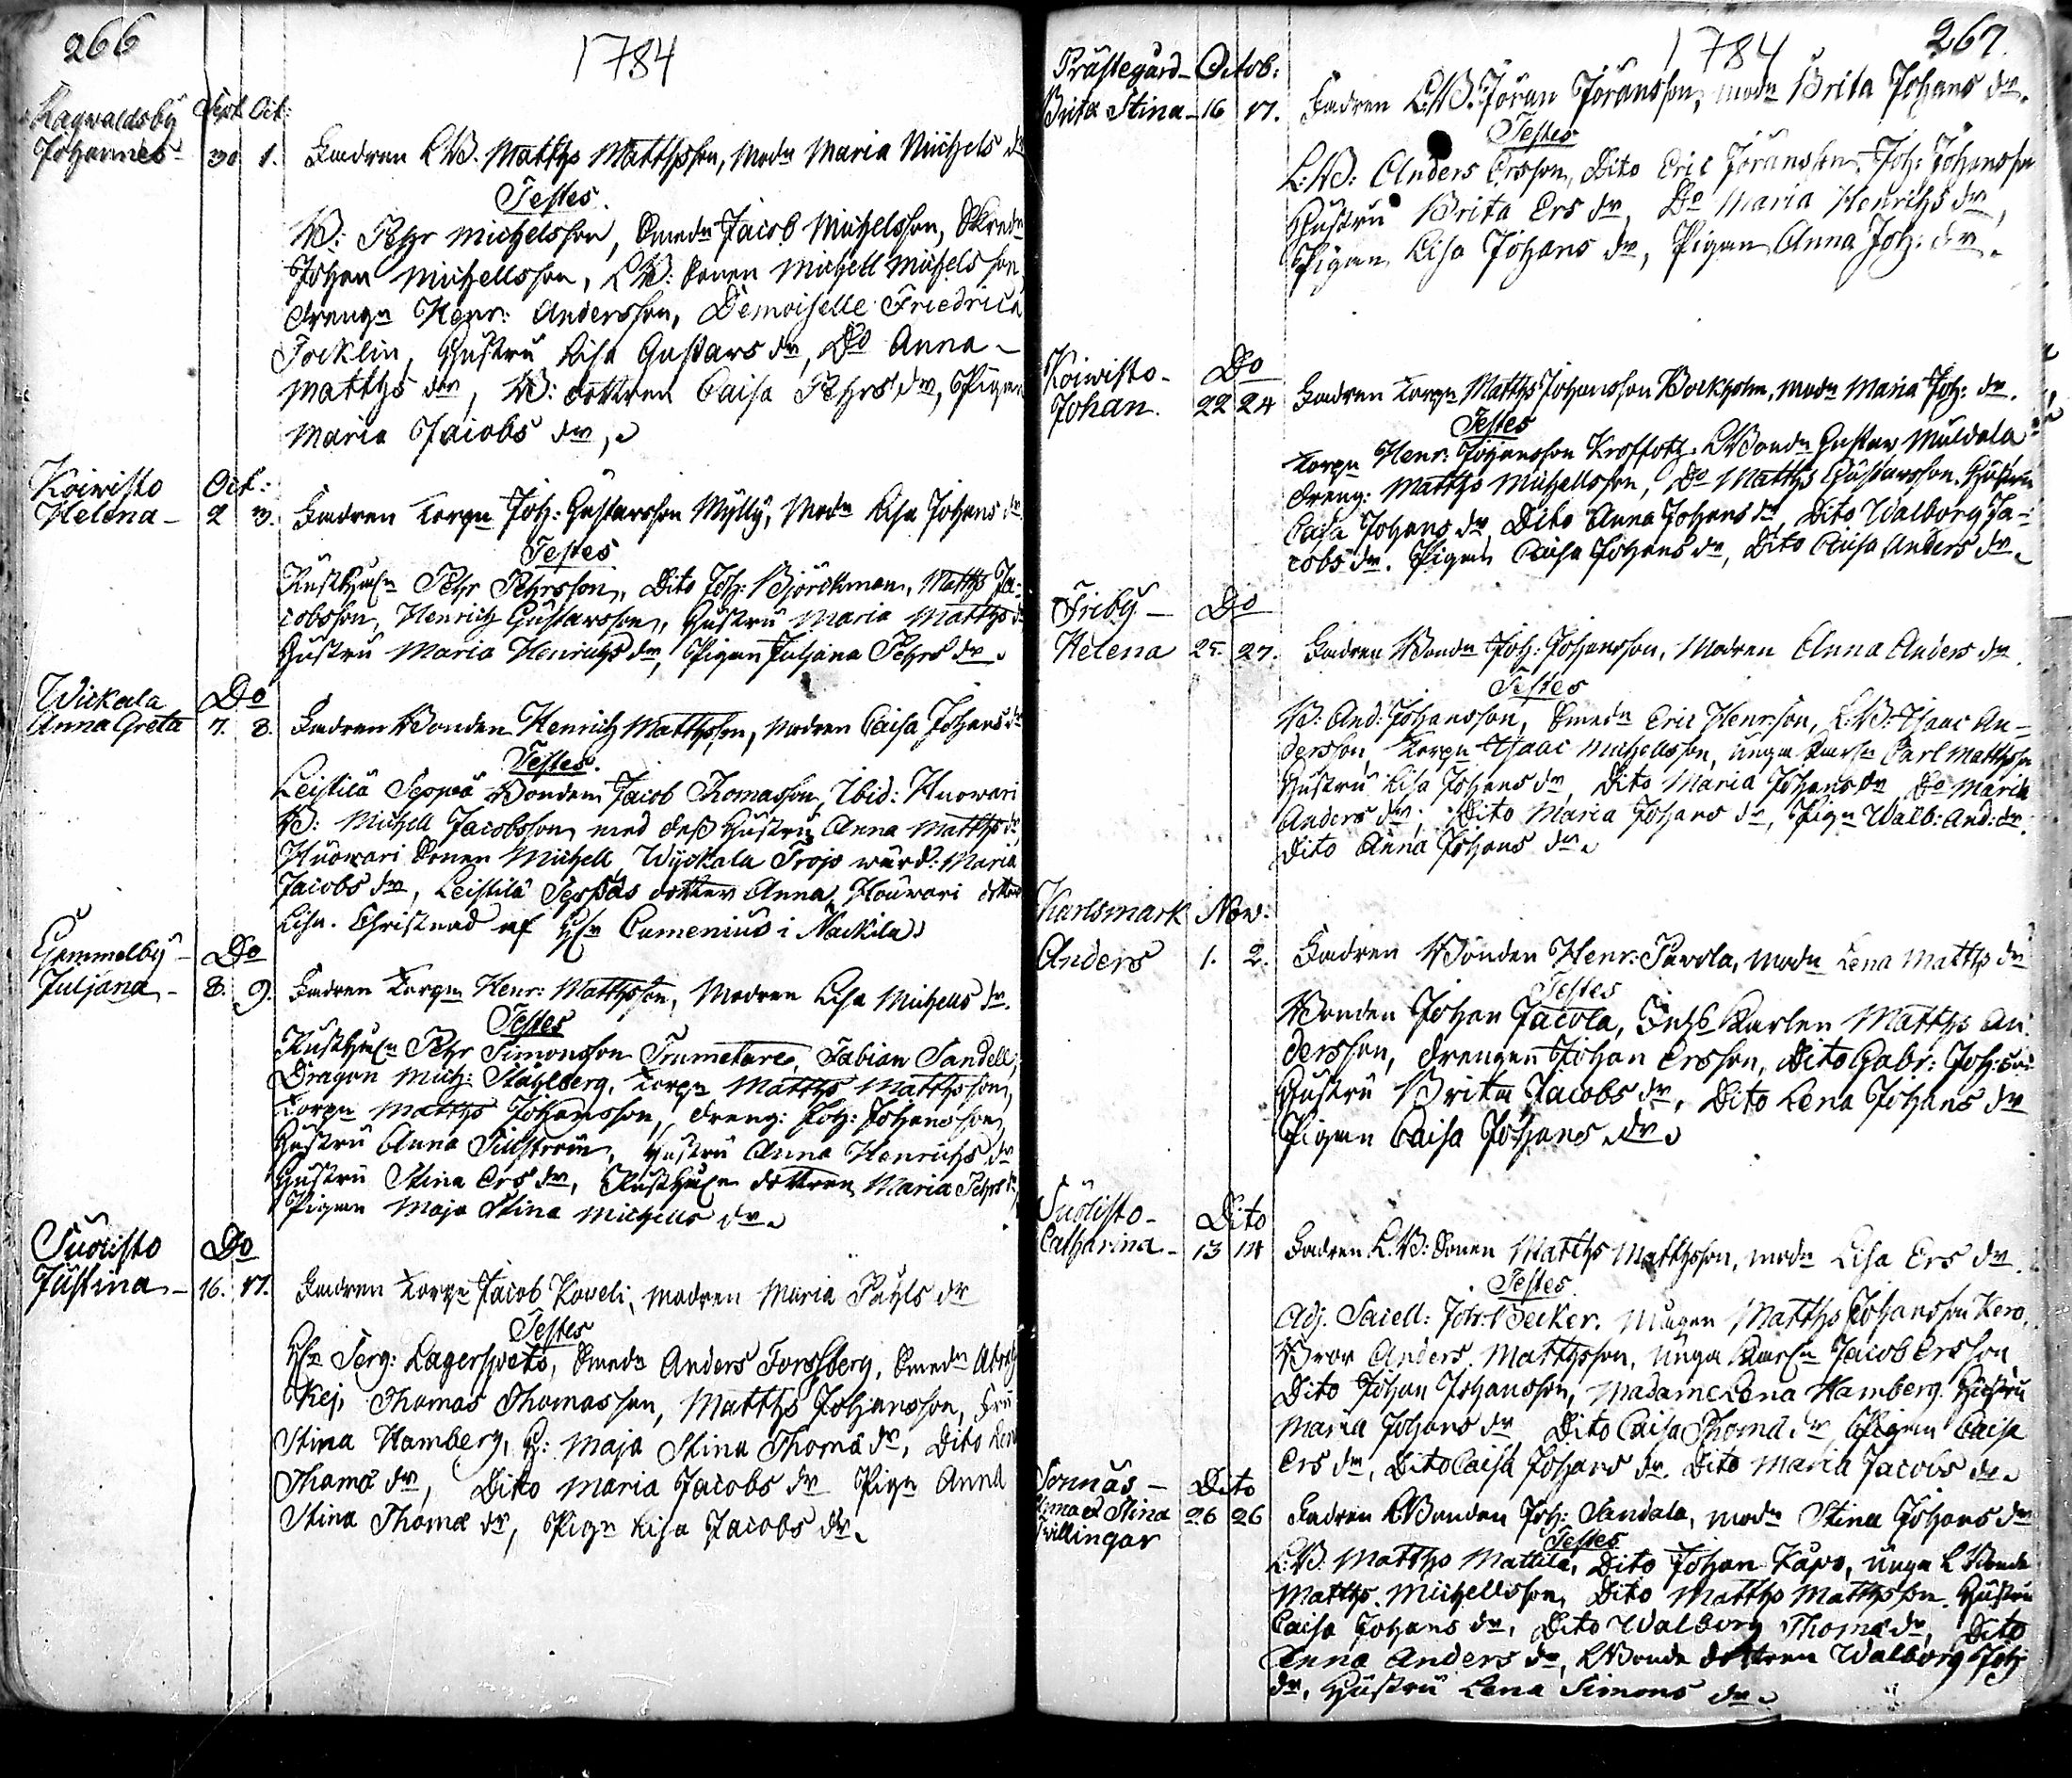 266
1784
Ragwaldsby Sept Oct:
Johannes 30 1. Fadren LB. Matths Matthsson, Modn Maria Michels dr
Testes.
B: Pehr Michelsson, Smedn Jacob Michelsson, Skredn
Johan Michellsson, LB: Sonen Michell Michelsson
Drengn Henr: Andersson, Demoiselle Friedrica
Focklin, Hustru Lisa Gustavs dr, Do Anna
Matths dr, B: dottren Caisa Pehrs dr, Pigan
Maria Jacobs dr,
Koivisto Oct:
Helena - 2 3. Fadren Torpn Joh: Gustavsson Mylly, Modn Lisa Johans dr
Testes
Rusthn Pehr Pehrsson, Dito Joh: Björckman, Matths Ja-
cobsson, Henrich Gustavsson, Hustru Maria Matths dr
Hustru Maria Henrichs dr, Pigan Juljana Pehrs dr
Wickala Do
Anna Greta 7. 8. Fadren Bonden Henrich Matthsson, Modren Caisa Johans dr
Testes.
Leistilä Seppä Bonden Jacob Thomasson, Ibid: Huowari
B: Michell Jacobsson med dess Hustru Anna Matths dr,
Huowari Sonen Michell, Wyckala Trojo wärd: Maria
Jacobs dr, Leistilä Seppäs dotter Anna, Houwari dotter
Lisa. Christnad af Hr Cumenius i Nackila
Gammelby - Do
Juljana - 8. 9. Fadren Torpn Henr: Matthsson, Modren Lisa Michells dr.
Testes
Rusthn Pehr Simonsson Trumetare, Fabian Sandell,
Dragon Mich: Ståhlberg, Torpn Matths Matthsson,
Torpn Matths Johansson, Dreng: Joh: Johansson
Hustru Anna Sillström, Hustru Anna Henrichs dr
Hustru Stina Ers dr, Rusthn dottren Maria Pehrs dr,
Pigan Maja Stina Michells dr
Suolisto Do
Justina - 16. 17. Fadren Torpn Jacob Koveli, Modren Maria Påhls dr
Testes
Hr Serg: Lagerspets, Smedn Anders Forssberg, Smedn
Thomas Thomasson, Matths Johansson, Fru
Stina Hamberg, H: Maja Stina Thomæ dr, Dito
Thomæ dr, Dito Maria Jacobs dr Pign Anna
Stina Thomæ dr, Pign Lisa Jacobs dr
1784
267
Prästegård - Octob:
Brita Stina - 16 17. Fadren LB. Jöran Jöransson, Modn Brita Johans dr.
Testes
L:B: Anders Ersson, Dito Eric Jöransson, Joh: Johansson
Hustru Brita Ers dr, Do Maria Henrichs dr,
Pigan Lisa Johans dr, Pigan Anna Joh: dr.
Koivisto - Do
Johan. 22 24 Fadren Torpn Matths Johansson Bockholm, Modn Maria Joh: dr.
Testes
Torpn Henr: Johansson LBondn Gustav Muldala
Dreng: Matths Michellsson, Do Matths Gustavsson, Hustru
Caisa Johans dr Dito Anna Johans dr, Dito Walborg Ja-
cobs dr. Pigan Caisa Johans dr, Dito Caisa Anders dr
Friby - Do
Helena 25. 27. Fadren Bondn Joh: Johansson, Modren Anna Anders dr.
Testes
B: And: Johansson, Smedn Eric Henrson, LB: Isaac An-
dersson, Torpn Isaac Michellsson, unga Karln Carl Matthsson
Hustru Lisa Johans dr, Dito Maria Johans dr Do Maria
Anders dr, Dito Maria Johans dr, Pign Walb: And: dr.
Dito Anna Johans dr
Karlsmark Nov:
Anders 1. 2. Fadren Bonden Henr: Pavola, Modn Lena Matths dr
Testes
Bonden Johan Jacola, Karlen Matths An-
dersson, Drengen Johan Ersson, Dito Gabr: Joh:son
Hustru Brita Jacobs dr, Dito Lena Johans dr
Pigan Caisa Johans dr
Suolisto - Dito
Catharina - 13 14 Fadren L.B: Sonen Matths Matthsson, Modn Lisa Ers dr.
Testes.
Adj. Sacell: Joh: Becker. Mågen Matths Johansson Kero,
Bror Anders Matthsson, unga Karln Jacob Ersson
Dito Johan Johansson, Madame Lena Hamberg. Hustru
Maria Johans dr Dito Caisa Thomæ dr Pigan Caisa
Ers dr, Dito Caisa Johans dr. Dito Maria Jacobs dr
Sonnäs - Dito
Stina 26 26 Fadren LBonden Joh: Sandala, Modn Stina Johans dr
Twillingar
Testes
L:B. Matths Mattila, Dito Johan Kåpo, unga LBonde
Matths Michellsson, Dito Matths Matthsson. Hustru
Caisa Johans dr, Dito Walborg Thomæ dr, Dito
Anna Anders dr, LBonde dottren Walborg Joh:
dr, Hustru Lena Simons dr